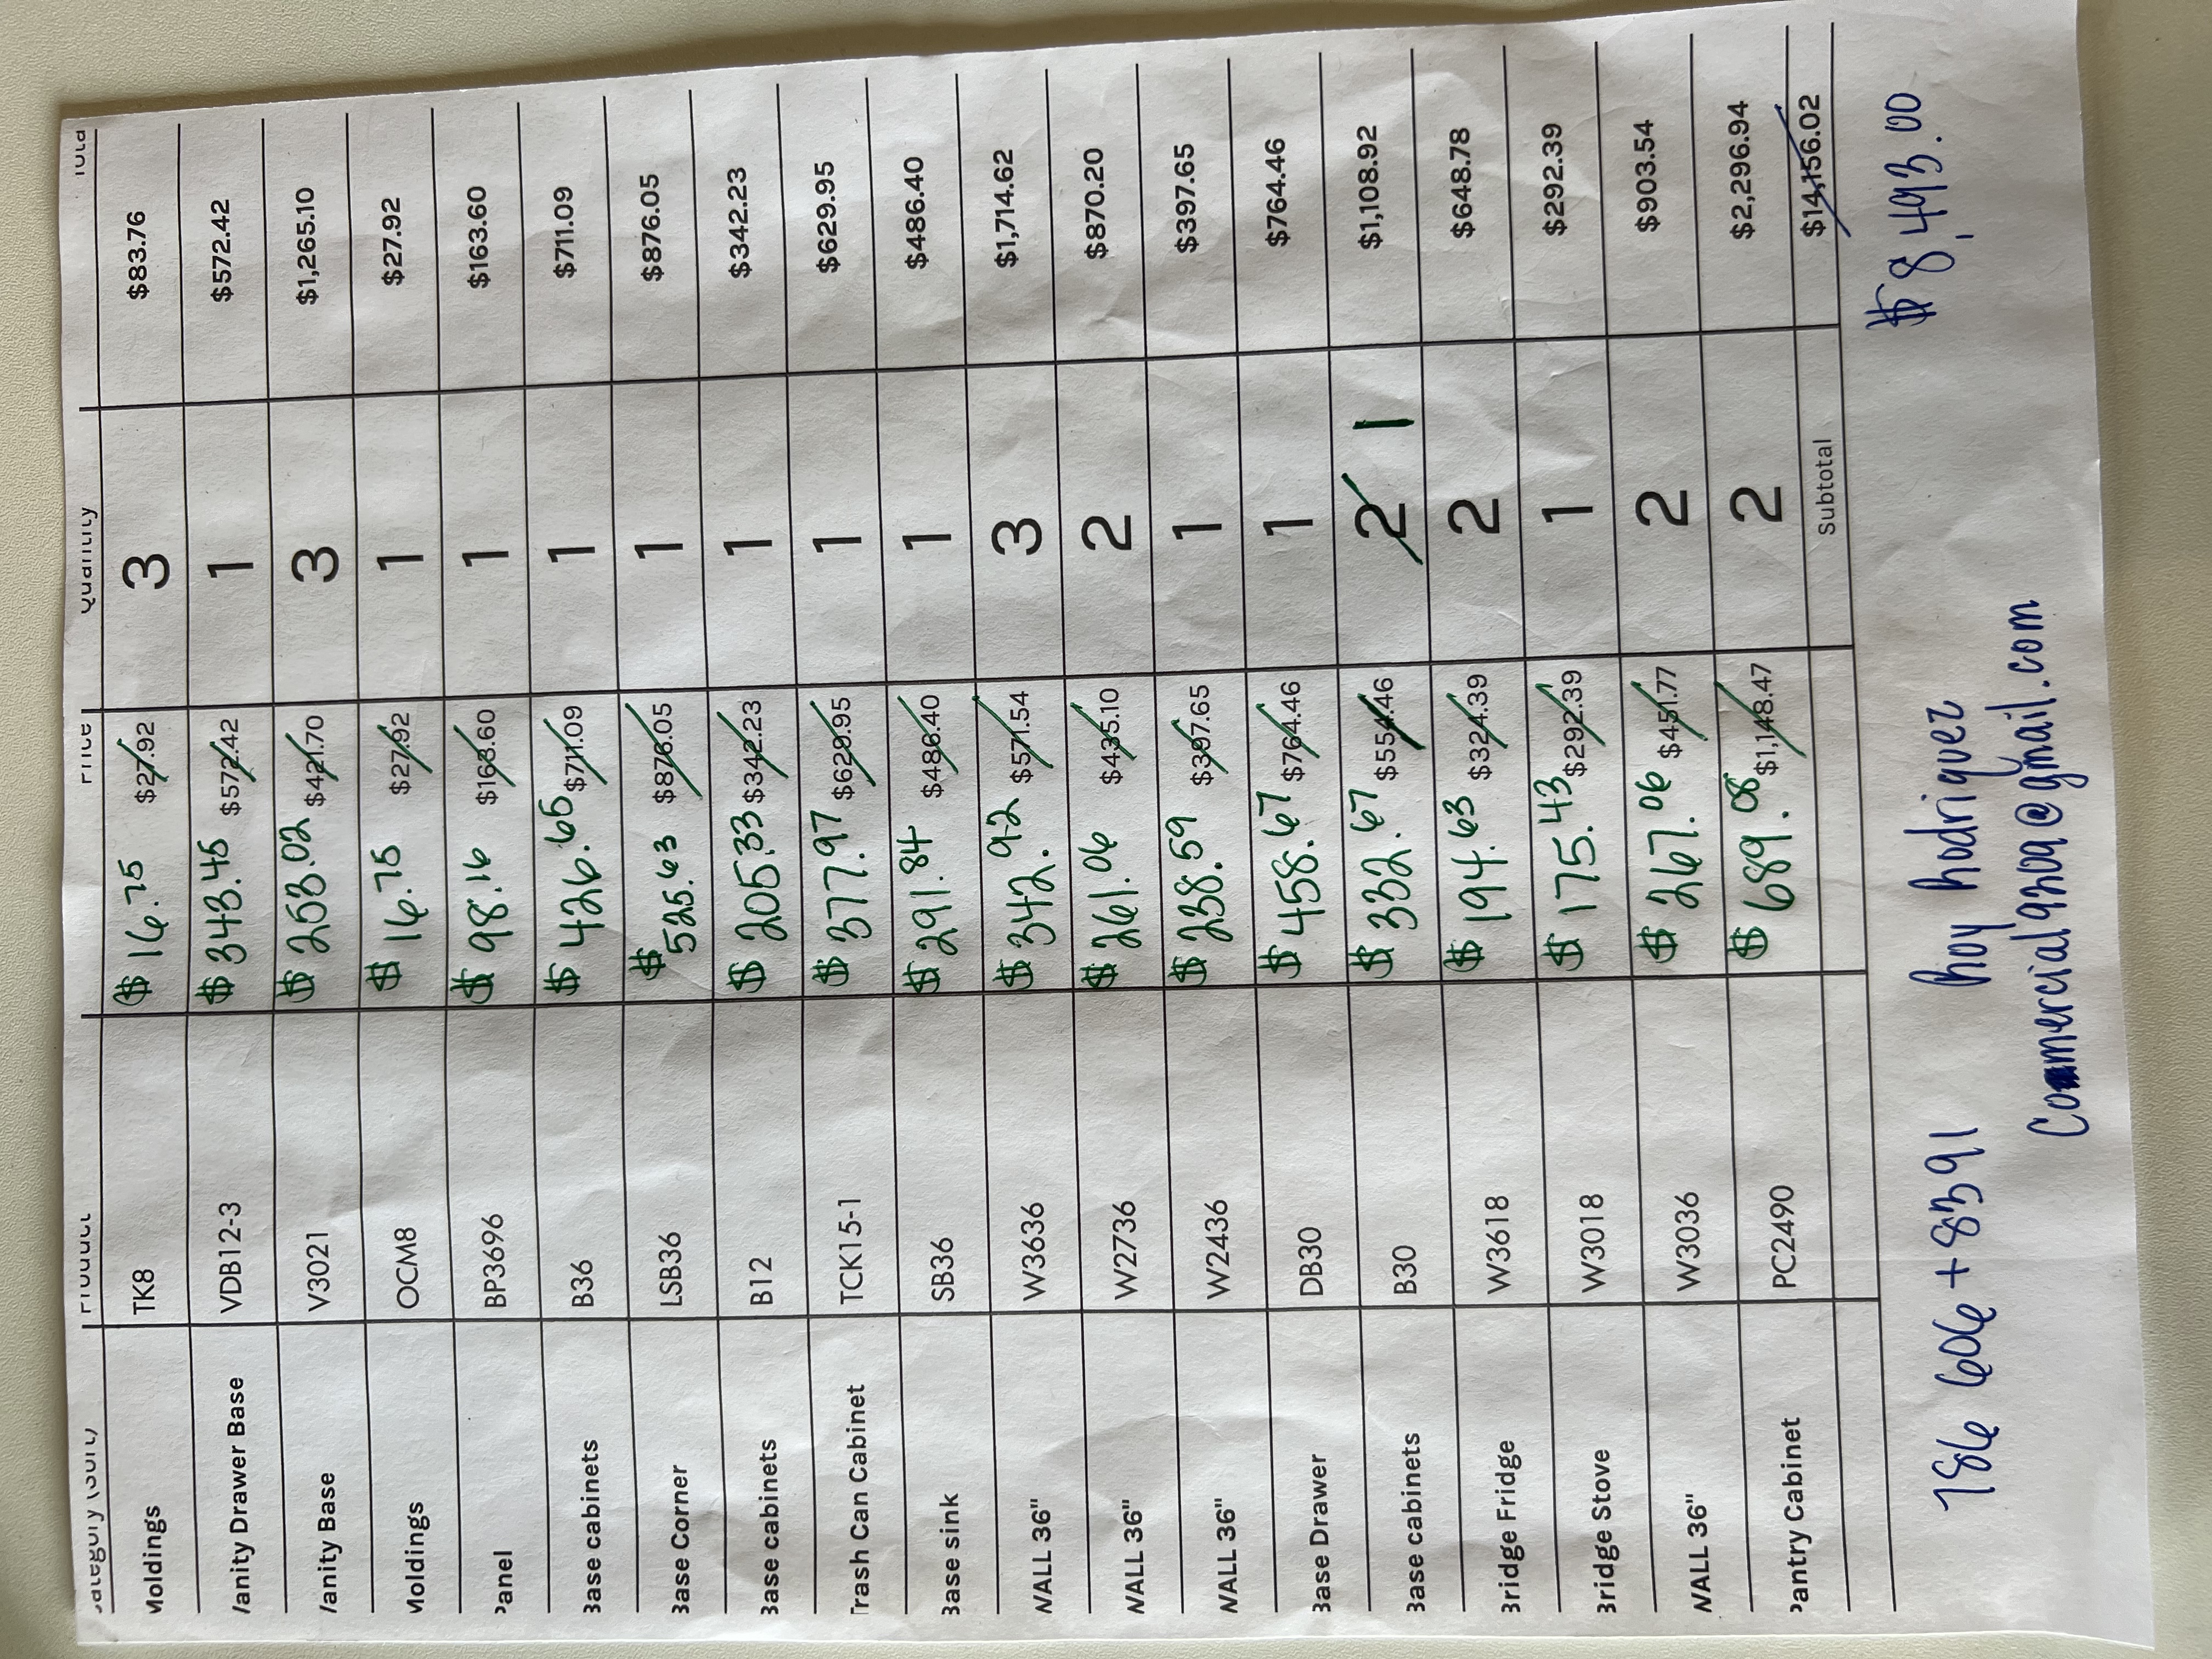 Moldings TK8 $16.75 $27.92 3 $83.76
Vanity Drawer Base VDB12-3 $343.45 $572.42 1 $572.42
Vanity Base V3021 $253.02 $421.70 3 $1,265.10
Moldings OCM8 $16.75 $27.92 1 $27.92
Panel BP3696 $98.16 $163.60 1 $163.60
Base cabinets B36 $426.65 $711.09 1 $711.09
Base Corner LSB36 $525.63 $876.05 1 $876.05
Base cabinets B12 $205.33 $342.23 1 $342.23
Trash Can Cabinet TCK15-1 $377.97 $629.95 1 $629.95
Base sink SB36 $291.84 $486.40 1 $486.40
WALL 36" W3636 $342.92 $571.54 3 $1,714.62
WALL 36" W2736 $261.06 $435.10 2 $870.20
WALL 36" W2436 $238.59 $397.65 1 $397.65
Base Drawer DB30 $458.67 $764.46 1 $764.46
Base cabinets B30 $332.67 $554.46 2 1 $1,108.92
Bridge Fridge W3618 $194.63 $324.39 2 $648.78
Bridge Stove W3018 $175.43 $292.39 1 $292.39
WALL 36" W3036 $267.06 $451.77 2 $903.54
Pantry Cabinet PC2490 $689.08 $1,148.47 2 $2,296.94
Subtotal $14,156.02
$8,493.00
786 606 + 8391